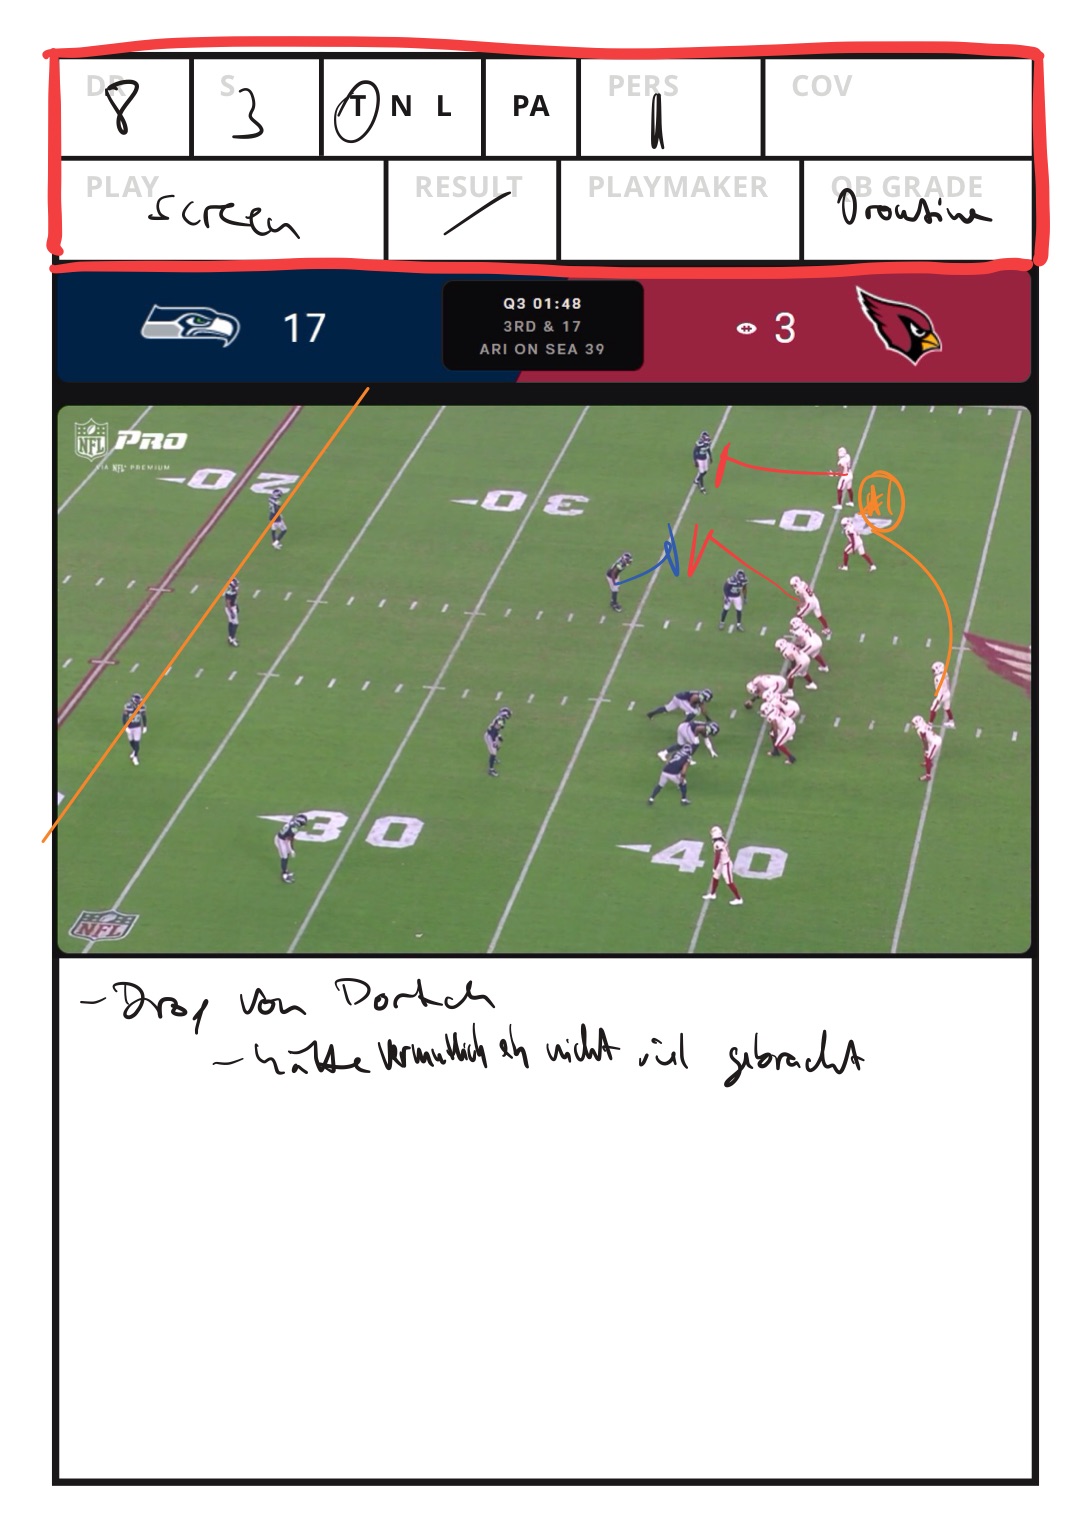 DR 8 S 3 T N L PA PERS 11 COV
PLAY Screen RESULT / PLAYMAKER QB GRADE 0 routine
17 Q3 01:48 3
3RD & 17
ARI ON SEA 39
NFL PRO
VIA NFL+ PREMIUM
20 30 40
#1
30 40
NFL
- Drop von Dortch
- hätte vermutlich eh nicht viel gebracht